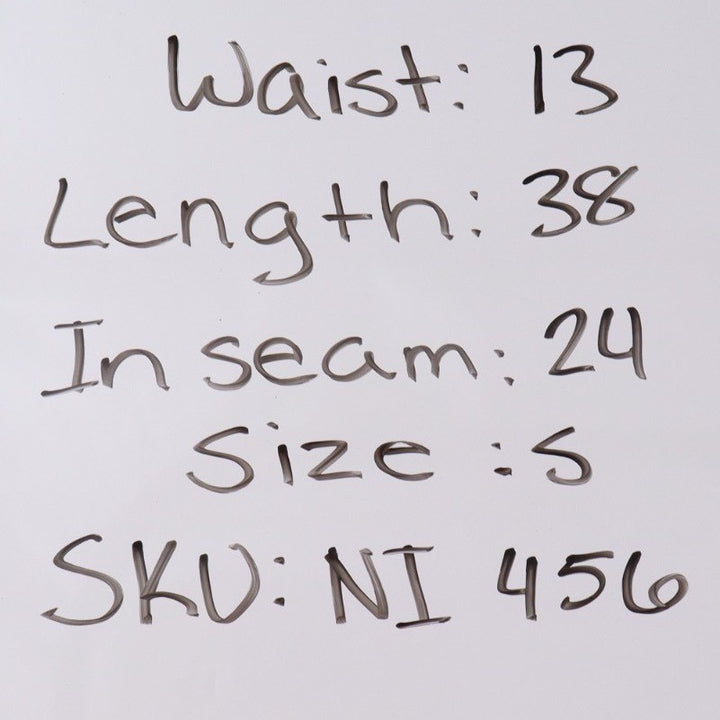 Waist: 13
Length: 38
In seam: 24
Size :S
SKU: NI 456